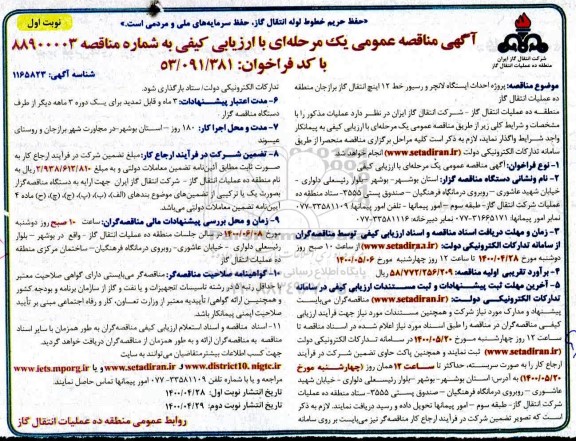 «حفظ حریم خطوط لوله انتقال گاز، حفظ سرمایه‌های ملی و مردمی است.»
نوبت اول
شرکت انتقال گاز ایران
منطقه ده عملیات انتقال گاز
آگهی مناقصه عمومی یک مرحله‌ای با ارزیابی کیفی به شماره مناقصه ۸۸۹۰۰۰۰۳
با کد فراخوان: ۵۳/۰۹۱/۳۸۱
شناسه آگهی: ۱۱۶۵۸۲۳
موضوع مناقصه: پروژه احداث ایستگاه لانچر و رسیور خط ۱۲ اینچ انتقال گاز برازجان منطقه
ده عملیات انتقال گاز
منطقه ده عملیات انتقال گاز - شرکت انتقال گاز ایران در نظر دارد عملیات مذکور را با
مشخصات و شرایط کلی زیر از طریق مناقصه عمومی یک مرحله‌ای با ارزیابی کیفی به پیمانکار
واجد شرایط واگذار نماید، لازم به ذکر است کلیه مراحل برگزاری مناقصه منحصرا از طریق
سامانه تدارکات الکترونیکی دولت (www.setadiran.ir) انجام خواهد شد.
۱- نوع فراخوان: آگهی مناقصه عمومی یک مرحله‌ای با ارزیابی کیفی
۲- نام ونشانی دستگاه مناقصه گزار: استان بوشهر- بوشهر -بلوار رئیسعلی دلواری -
خیابان شهید عاشوری - روبروی درمانگاه فرهنگیان - صندوق پستی ۳۵۵۵- ستاد منطقه ده
عملیات انتقال گاز- طبقه سوم - امور پیمانها - تلفن امور پیمانها: ۳۳۵۸۱۱۰۹-۰۷۷
نمابر امور پیمانها: ۳۱۶۶۵۱۷۱-۰۷۷ نمابر دبیرخانه: ۳۳۵۸۱۱۱۶-۰۷۷
۳- زمان و مهلت دریافت اسناد مناقصه و اسناد ارزیابی کیفی توسط مناقصه‌گران
از سامانه تدارکات الکترونیکی دولت: (www.setadiran.ir) از ساعت ۱۰ صبح روز
دوشنبه مورخ ۱۴۰۰/۰۴/۲۸ تا ساعت ۱۲ روز چهارشنبه مورخ ۱۴۰۰/۰۵/۰۶
۴- برآورد تقریبی اولیه مناقصه: ۵۸/۷۷۲/۲۵۶/۲۰۹ ریال
۵- آخرین مهلت ثبت پیشنهادات و ثبت مستندات ارزیابی کیفی در سامانه
تدارکات الکترونیکی دولت: (www.setadiran.ir) مناقصه گران می‌بایست
پیشنهاد و مدارک مورد نیاز شرکت و همچنین مستندات مورد نیاز جهت فرآیند ارزیابی
کیفی مناقصه‌گران در مناقصه را طبق اسناد مورد نیاز اعلام شده در اسناد مناقصه تا
ساعت ۱۲ روز چهارشنبه مورخ ۱۴۰۰/۰۵/۲۰ در سامانه تدارکات الکترونیکی دولت
(www.setadiran.ir) ثبت نمایند و همچنین پاکت حاوی تضمین شرکت در فرآیند
ارجاع کار را به صورت سربسته، حداکثر تا ساعت ۱۲ همان روز (چهارشنبه مورخ
۱۴۰۰/۰۵/۲۰) به آدرس: استان بوشهر-بوشهر -بلوار رئیسعلی دلواری - خیابان شهید
عاشوری - روبروی درمانگاه فرهنگیان - صندوق پستی ۳۵۵۵- ستاد منطقه ده عملیات
انتقال گاز-طبقه سوم - امور پیمانها تحویل داده و رسید دریافت نمایند. لازم به ذکر
است که تصویر تضمین شرکت در فرآیند ارجاع کار مناقصه‌گر نیز می‌بایست بر روی سامانه
تدارکات الکترونیکی دولت/ ستاد بارگذاری شود.
۶- مدت اعتبار پیشنهادات: ۳ ماه و قابل تمدید برای یک دوره ۳ ماهه دیگر از طرف
دستگاه مناقصه گزار
۷- مدت و محل اجرا کار: ۱۸۰ روز – استان بوشهر-در مجاورت شهر برازجان و روستای
عیسوند
۸- تضمین شرکت در فرآیند ارجاع کار: مبلغ تضمین شرکت در فرآیند ارجاع کار به
صورت ثابت مطابق آئین‌نامه تضمین معاملات دولتی و به مبلغ ۲/۹۳۸/۶۱۲/۸۱۰ ریال به
نام منطقه ده عملیات انتقال گاز - شرکت انتقال گاز ایران جهت ارایه به دستگاه مناقصه‌گزار
بصورت یک یا ترکیبی از تضمین‌های موضوع بندهای (الف)، (ب)، (پ)، (ج)، (ح) ماده ۴
آیین‌نامه تضمین معاملات دولتی می‌باشد.
۹- زمان و محل بررسی پیشنهادات مالی مناقصه‌گران: ساعت ۱۰ صبح روز دوشنبه
مورخ ۱۴۰۰/۰۶/۰۸ در سالن جلسات منطقه ده عملیات انتقال گاز- واقع در بوشهر - بلوار
رئیسعلی دلواری - خیابان عاشوری- روبروی درمانگاه فرهنگیان- ساختمان مرکزی منطقه
ده عملیات انتقال گاز
۱۰- گواهینامه صلاحیت مناقصه‌گر: مناقصه‌گر می‌بایستی دارای گواهی صلاحیت معتبر
با حداقل رتبه در رشته تاسیسات تجهیزات و یا نفت و گاز از سازمان برنامه و بودجه کشور
و همچنین ارائه گواهی/ تاییدیه معتبر از وزارت تعاون، کار و رفاه اجتماعی مبنی بر تأیید
صلاحیت ایمنی پیمانکار باشد.
۱۱- اسناد مناقصه و اسناد استعلام ارزیابی کیفی مناقصه‌گران به طور همزمان با سایر اسناد
مناقصه‌گران ارائه و به طور همزمان از مناقصه‌گران دریافت خواهد گردید.
جهت کسب اطلاعات بیشتر متقاضیان می‌توانند به سایت
www.iets.mporg.ir و یا www.setadiran.ir و www.district10.nigtc.ir
مراجعه و یا با شماره تلفن ۳۳۵۸۱۱۰۹-۰۷۷ امور پیمانها تماس حاصل نمایند.
تاریخ انتشار نوبت اول: ۱۴۰۰/۰۴/۲۸
تاریخ انتشار نوبت دوم: ۱۴۰۰/۰۴/۲۹
روابط عمومی منطقه ده عملیات انتقال گاز